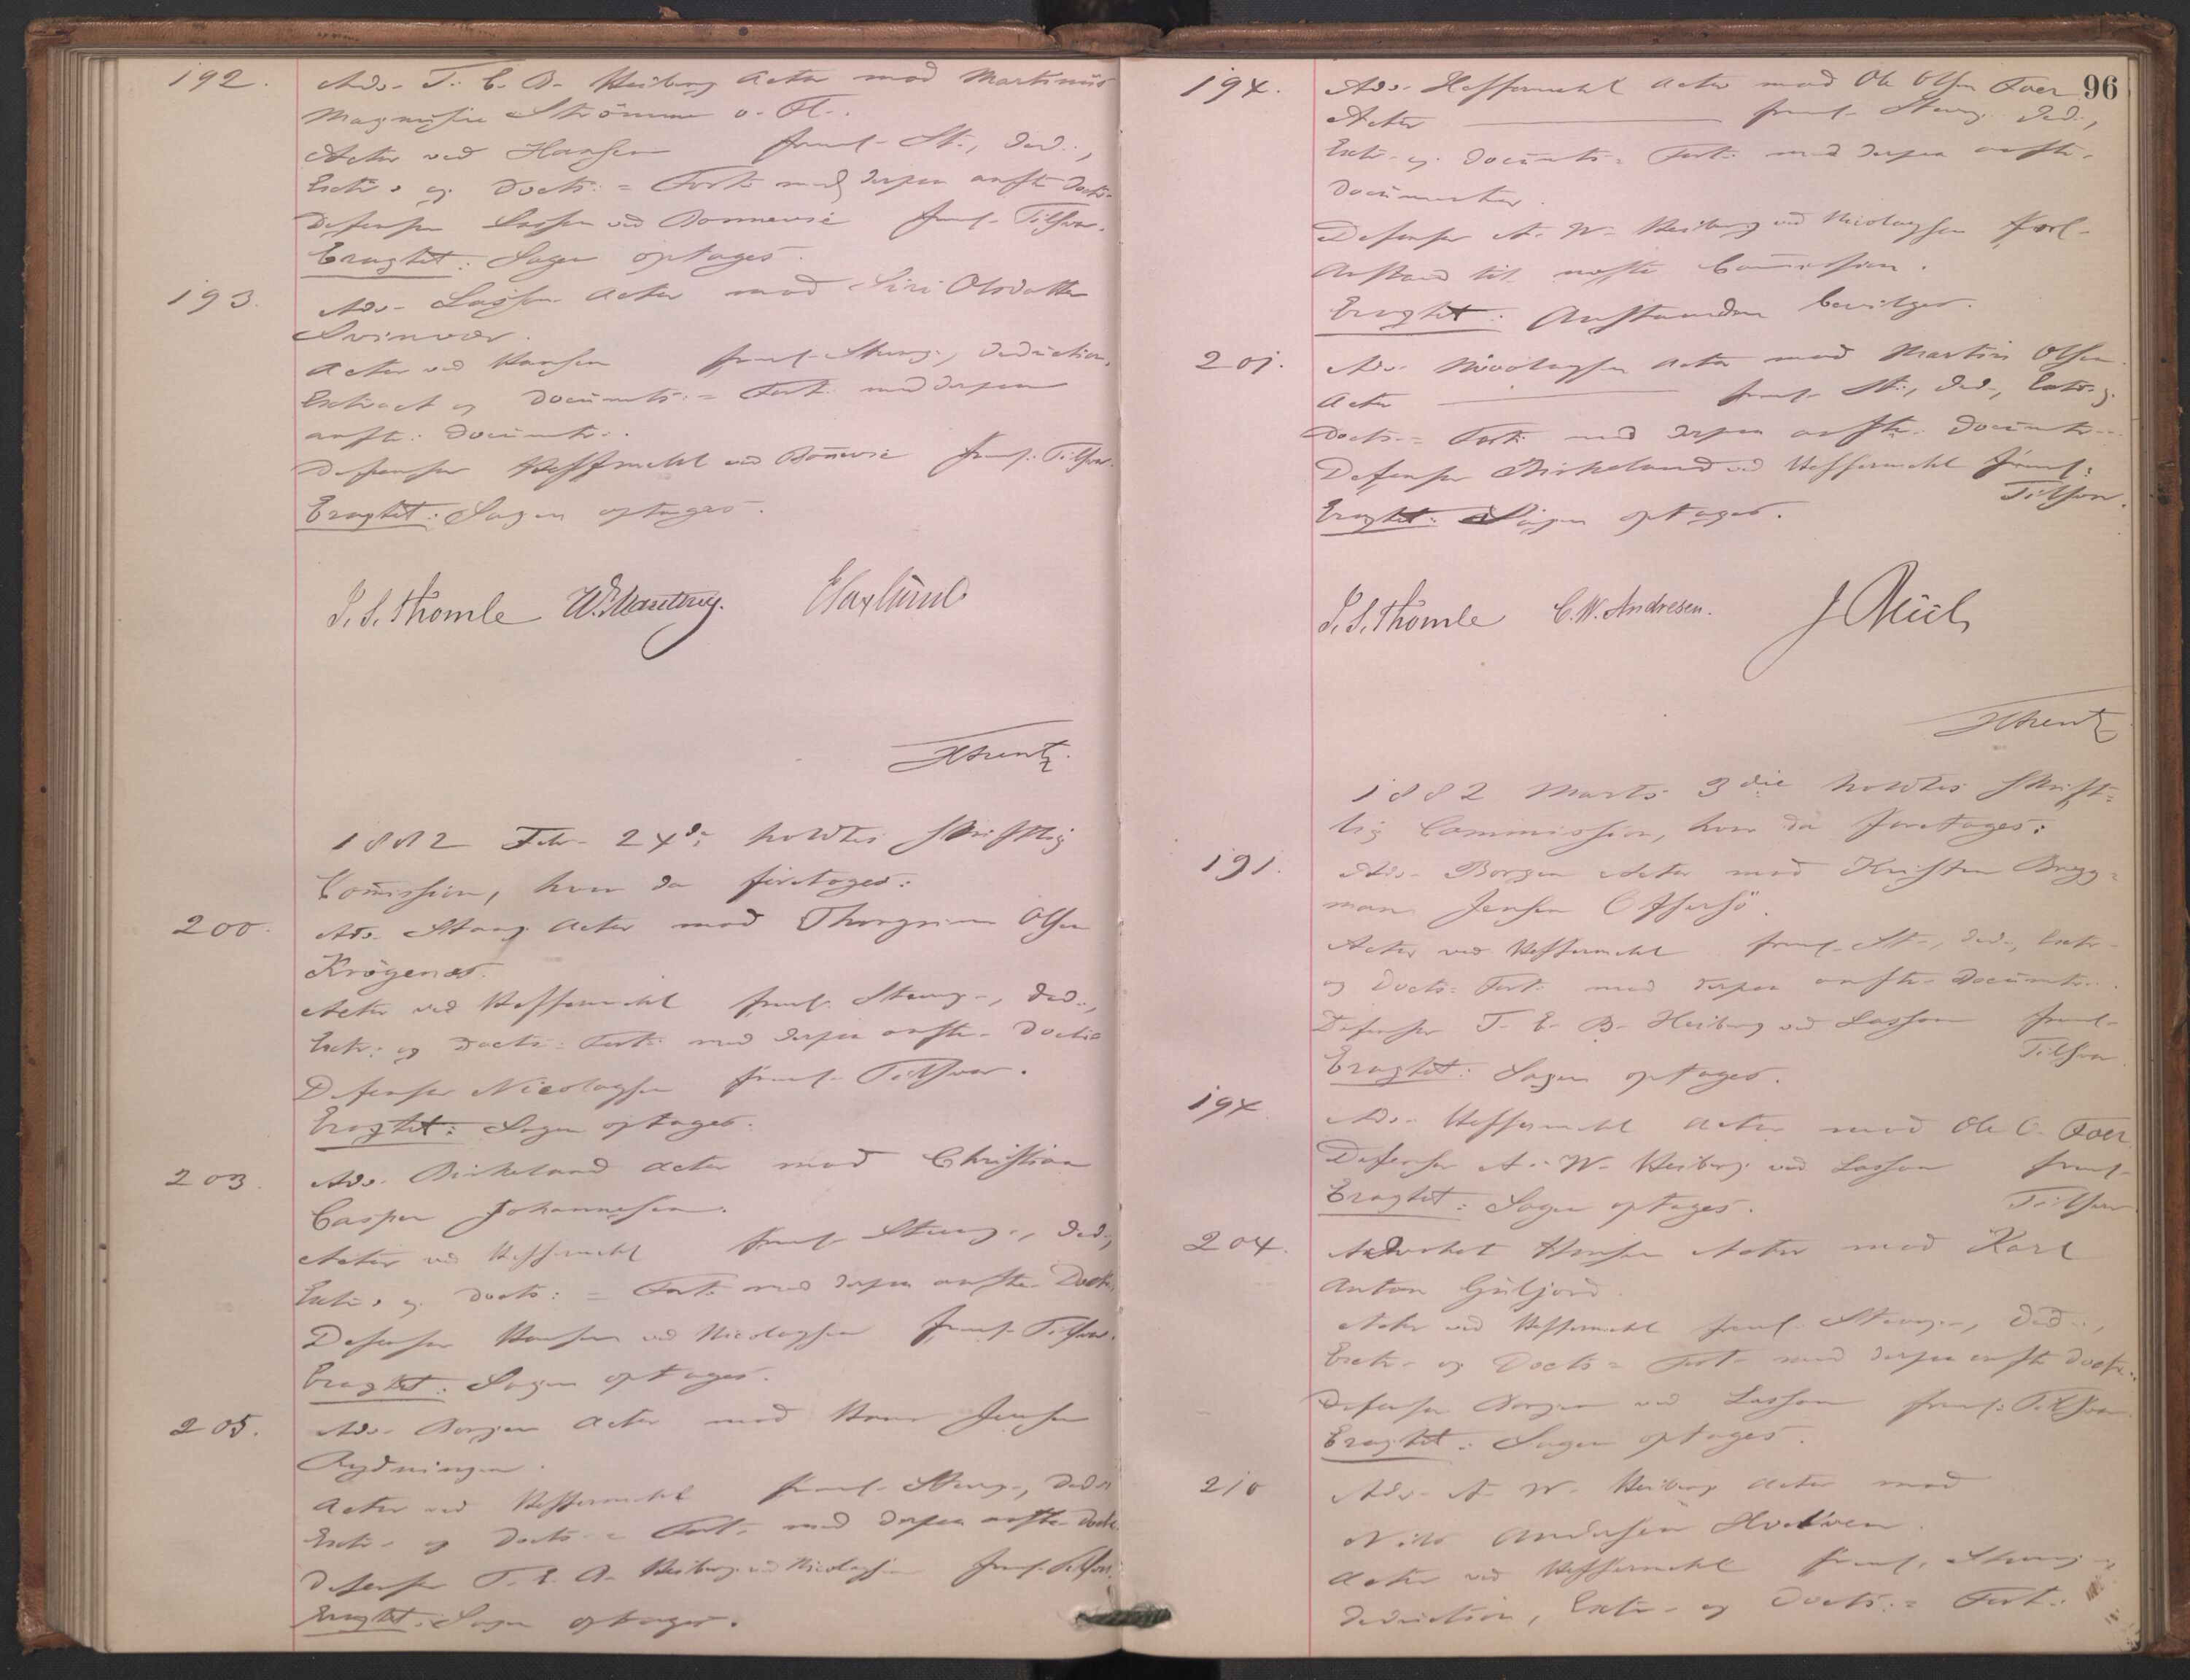 192. Adv. T. E. B. Heiberg Actor mod Martinus
Magnussen Strömme o. Fl.
Actor ved Hansen freml. St., Ded.,
Extr. og Docts. = Fort. med derpaa anfte Docts.
Defensor Lasson ved Bonnevie freml. Tilsvar.
Eragtet: Sagen optages.
193. Adv. Lasson Actor mod Siri Olsdatter
Svinvær.
Actor ved Hansen freml. Stevng., Deduction,
Extract og Documts. = Fort. med derpaa
anfte. Documtr.
Defensor Heffermehl ved Boñevie freml. Tilsvar.
Eragtet: Sagen optages.
S. S. Thomle
1882 Febr. 24de holdtes skriftlig
Com̃ission, hvor da foretoges:
200. Adv. Stang Actor mod Thorgrim Olsen
Krögenæs.
Actor ved Heffermehl freml. Stevng., Ded.,
Extr. og Docts. Fort. med derpaa anfte. Docts.
Defensor Nicolaysen freml. Tilsvar.
Eragtet: Sagen optages.
203. Adv. Birkeland Actor mod Christian
Casper Johannesen.
Actor ved Heffermehl freml. Stevng., Ded.,
Extr. og Docts. = Fort. med derpaa anfte. Docts.
Defensor Hansen ved Nicolaysen freml. Tilsvar.
Eragtet: Sagen optages.
205. Adv. Borgen Actor mod Hans Jensen
Rydningen.
Actor ved Heffermehl freml. Stevng., Ded.,
Extr. og Docts. = Fort. med derpaa anfte. Docts.
Defensor T. E. B. Heiberg ved Nicolaysen freml. Tilsv.
Eragtet: Sagen optages.
96
194. Adv. Heffermehl Actor mod Ole Olsen Foer
Actor freml. Stevng. Ded.,
Extr. og Documts. = Fort. med derpaa anfte.
Documenter.
Defensor A. W. Heiberg ved Nicolaysen forl.
Anstand til næste Com̃ission.
Eragtet: Anstanden bevilges.
201. Adv. Nicolaysen Actor mod Martin Olsen
Actor freml. St., Ded., Extr. og
Docts. = Fort. med derpaa anfte. Documtr.
Defensor Birkeland ved Heffermehl freml.
Tilsvar.
Eragtet: Sagen optages.
S. S. Thomle C. W. Andresen.
1882 Marts 3die holdtes skrift=
lig Commission, hvor da foretoges:
191. Adv. Borgen Actor mod Kristen Brygg=
mann Jensen Offersö.
Actor ved Heffermehl freml. St., Ded., Extr.
og Docts. Fort. med derpaa anfte. Documtr.
Defensor T. E. B. Heiberg ved Lasson freml.
Tilsvar
Eragtet: Sagen optages.
194 Adv. Heffermehl Actor mod Ole O. Foer
Defensor A. W. Heiberg ved Lasson freml.
Tilsvar
Eragtet: Sagen optages.
204. Advokat Hansen Actor mod Karl
Anton Guljord.
Actor ved Heffermehl freml. Stevng., Ded.,
Extr. og Docts. = Fort. med derpaa anfte Docts.
Defensor Borgen ved Lasson freml. Tilsvar.
Eragtet: Sagen optages.
210 Adv. A. W. Heiberg Actor mod
Nils Andersen
Actor ved Heffermehl freml. Stevng.,
Deduction, Extr. og Docts. = Fort.